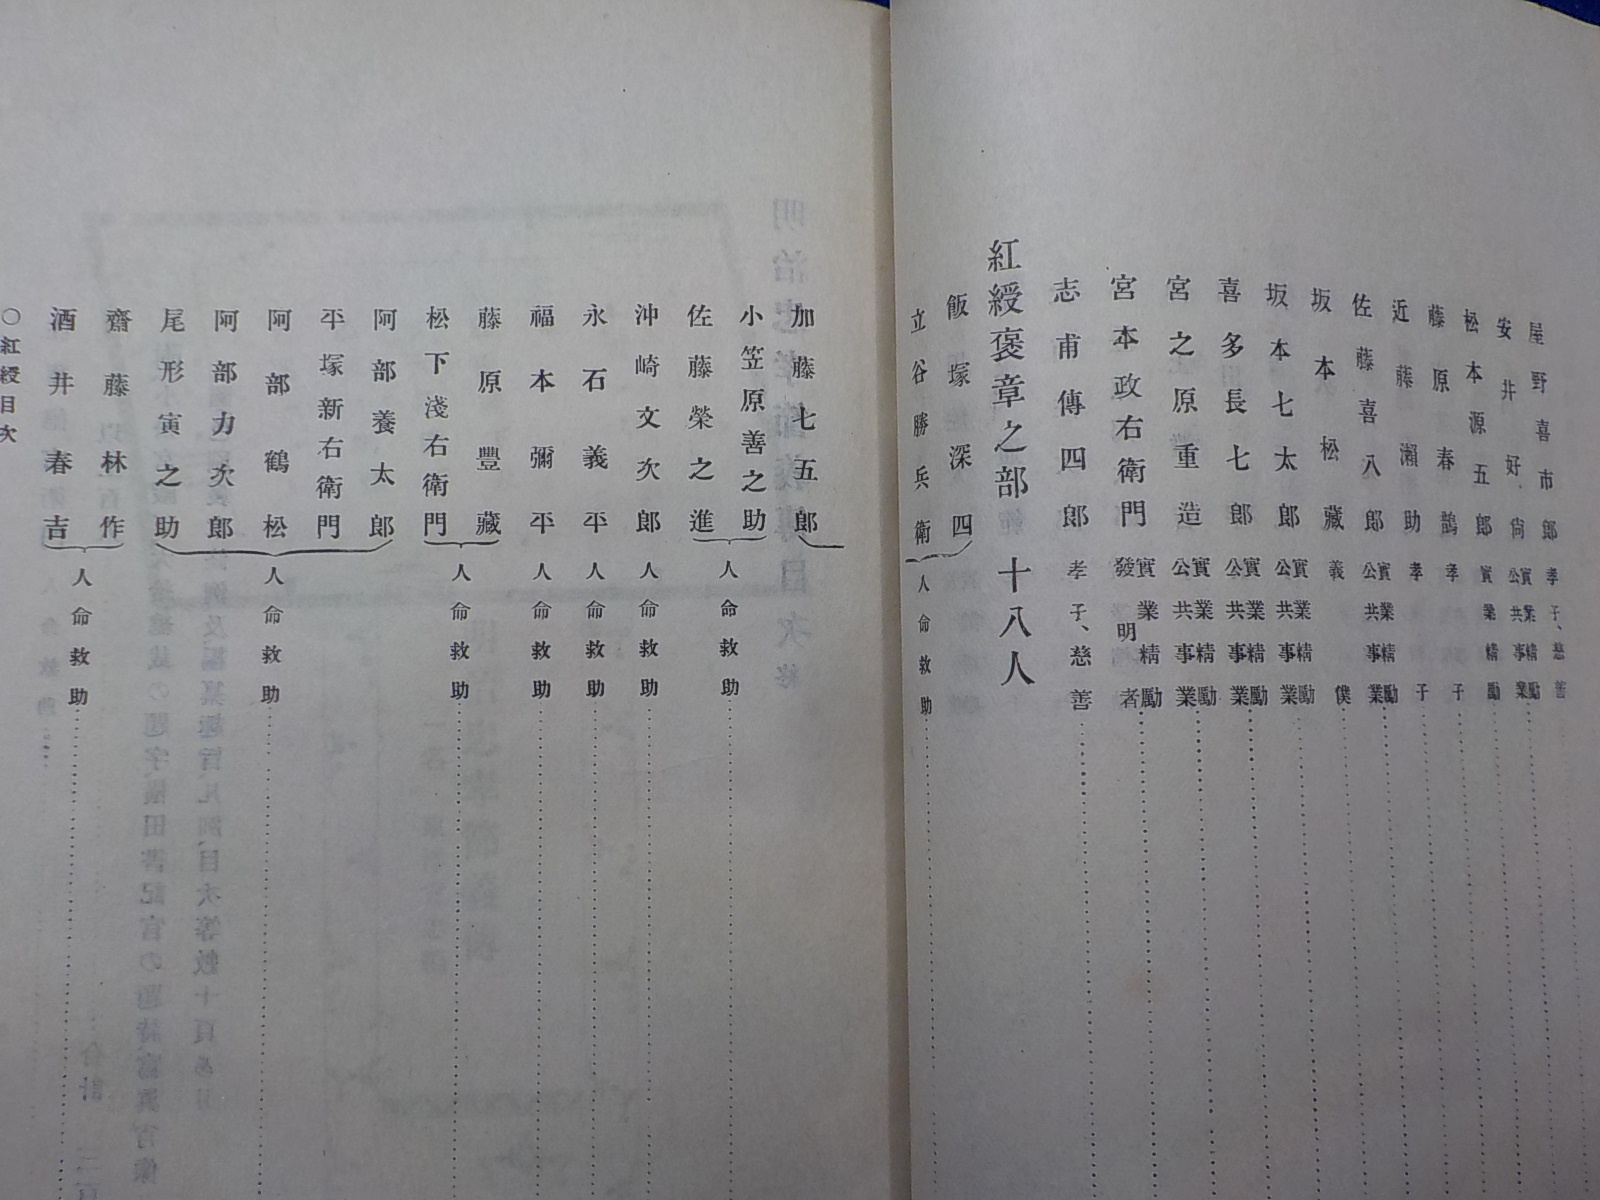 屋野喜市郎 孝子、慈善
安井好尙 實業精勵 公共事業
松本源五郎 實業精勵
藤原春鵲 孝子
近藤瀨助 孝子
佐藤喜八郎 實業精勵 公共事業
坂本松藏 義僕
坂本七太郎 實業精勵 公共事業
喜多長七郎 實業精勵 公共事業
宮之原重造 實業精勵 公共事業
宮本政右衛門 實業精勵 發明者
志甫傳四郎 孝子、慈善
紅綬褒章之部 十八人
飯塚深四
立谷勝兵衛
人命救助
加藤七五郎
小笠原善之助
佐藤榮之進
人命救助
沖崎文次郎 人命救助
永石義平 人命救助
福本彌平 人命救助
藤原豐藏
松下淺右衛門
人命救助
阿部養太郎
平塚新右衛門
阿部鶴松
阿部力次郎
尾形寅之助
人命救助
齋藤林作
酒井春吉
人命救助
〇紅綬目次